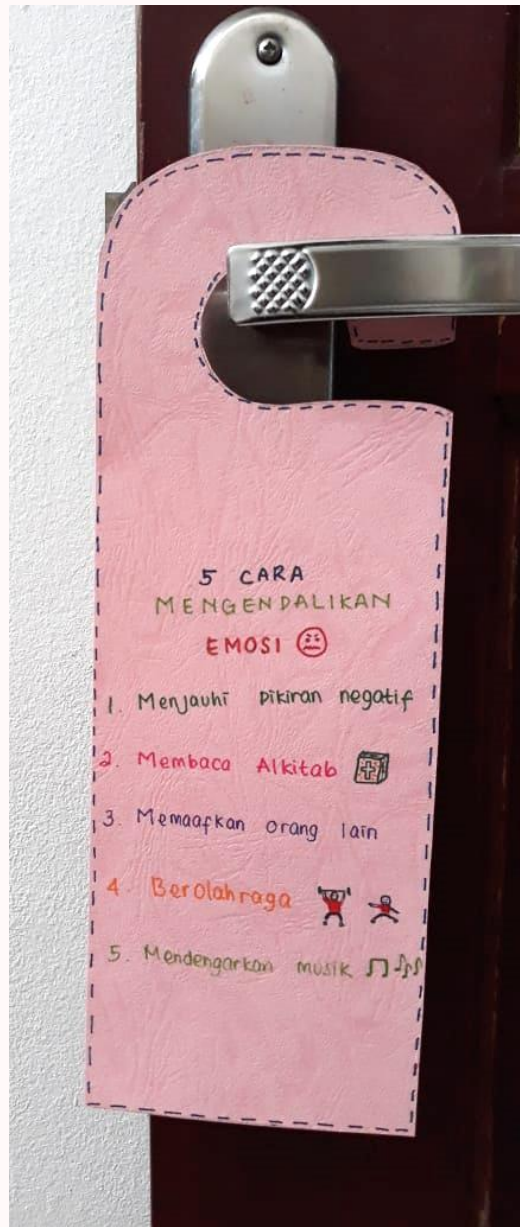 5 CARA
MENGENDALIKAN
EMOSI
1. Menjauhi pikiran negatif
2. Membaca Alkitab
3. Memaafkan orang lain
4. Berolahraga
5. Mendengarkan musik